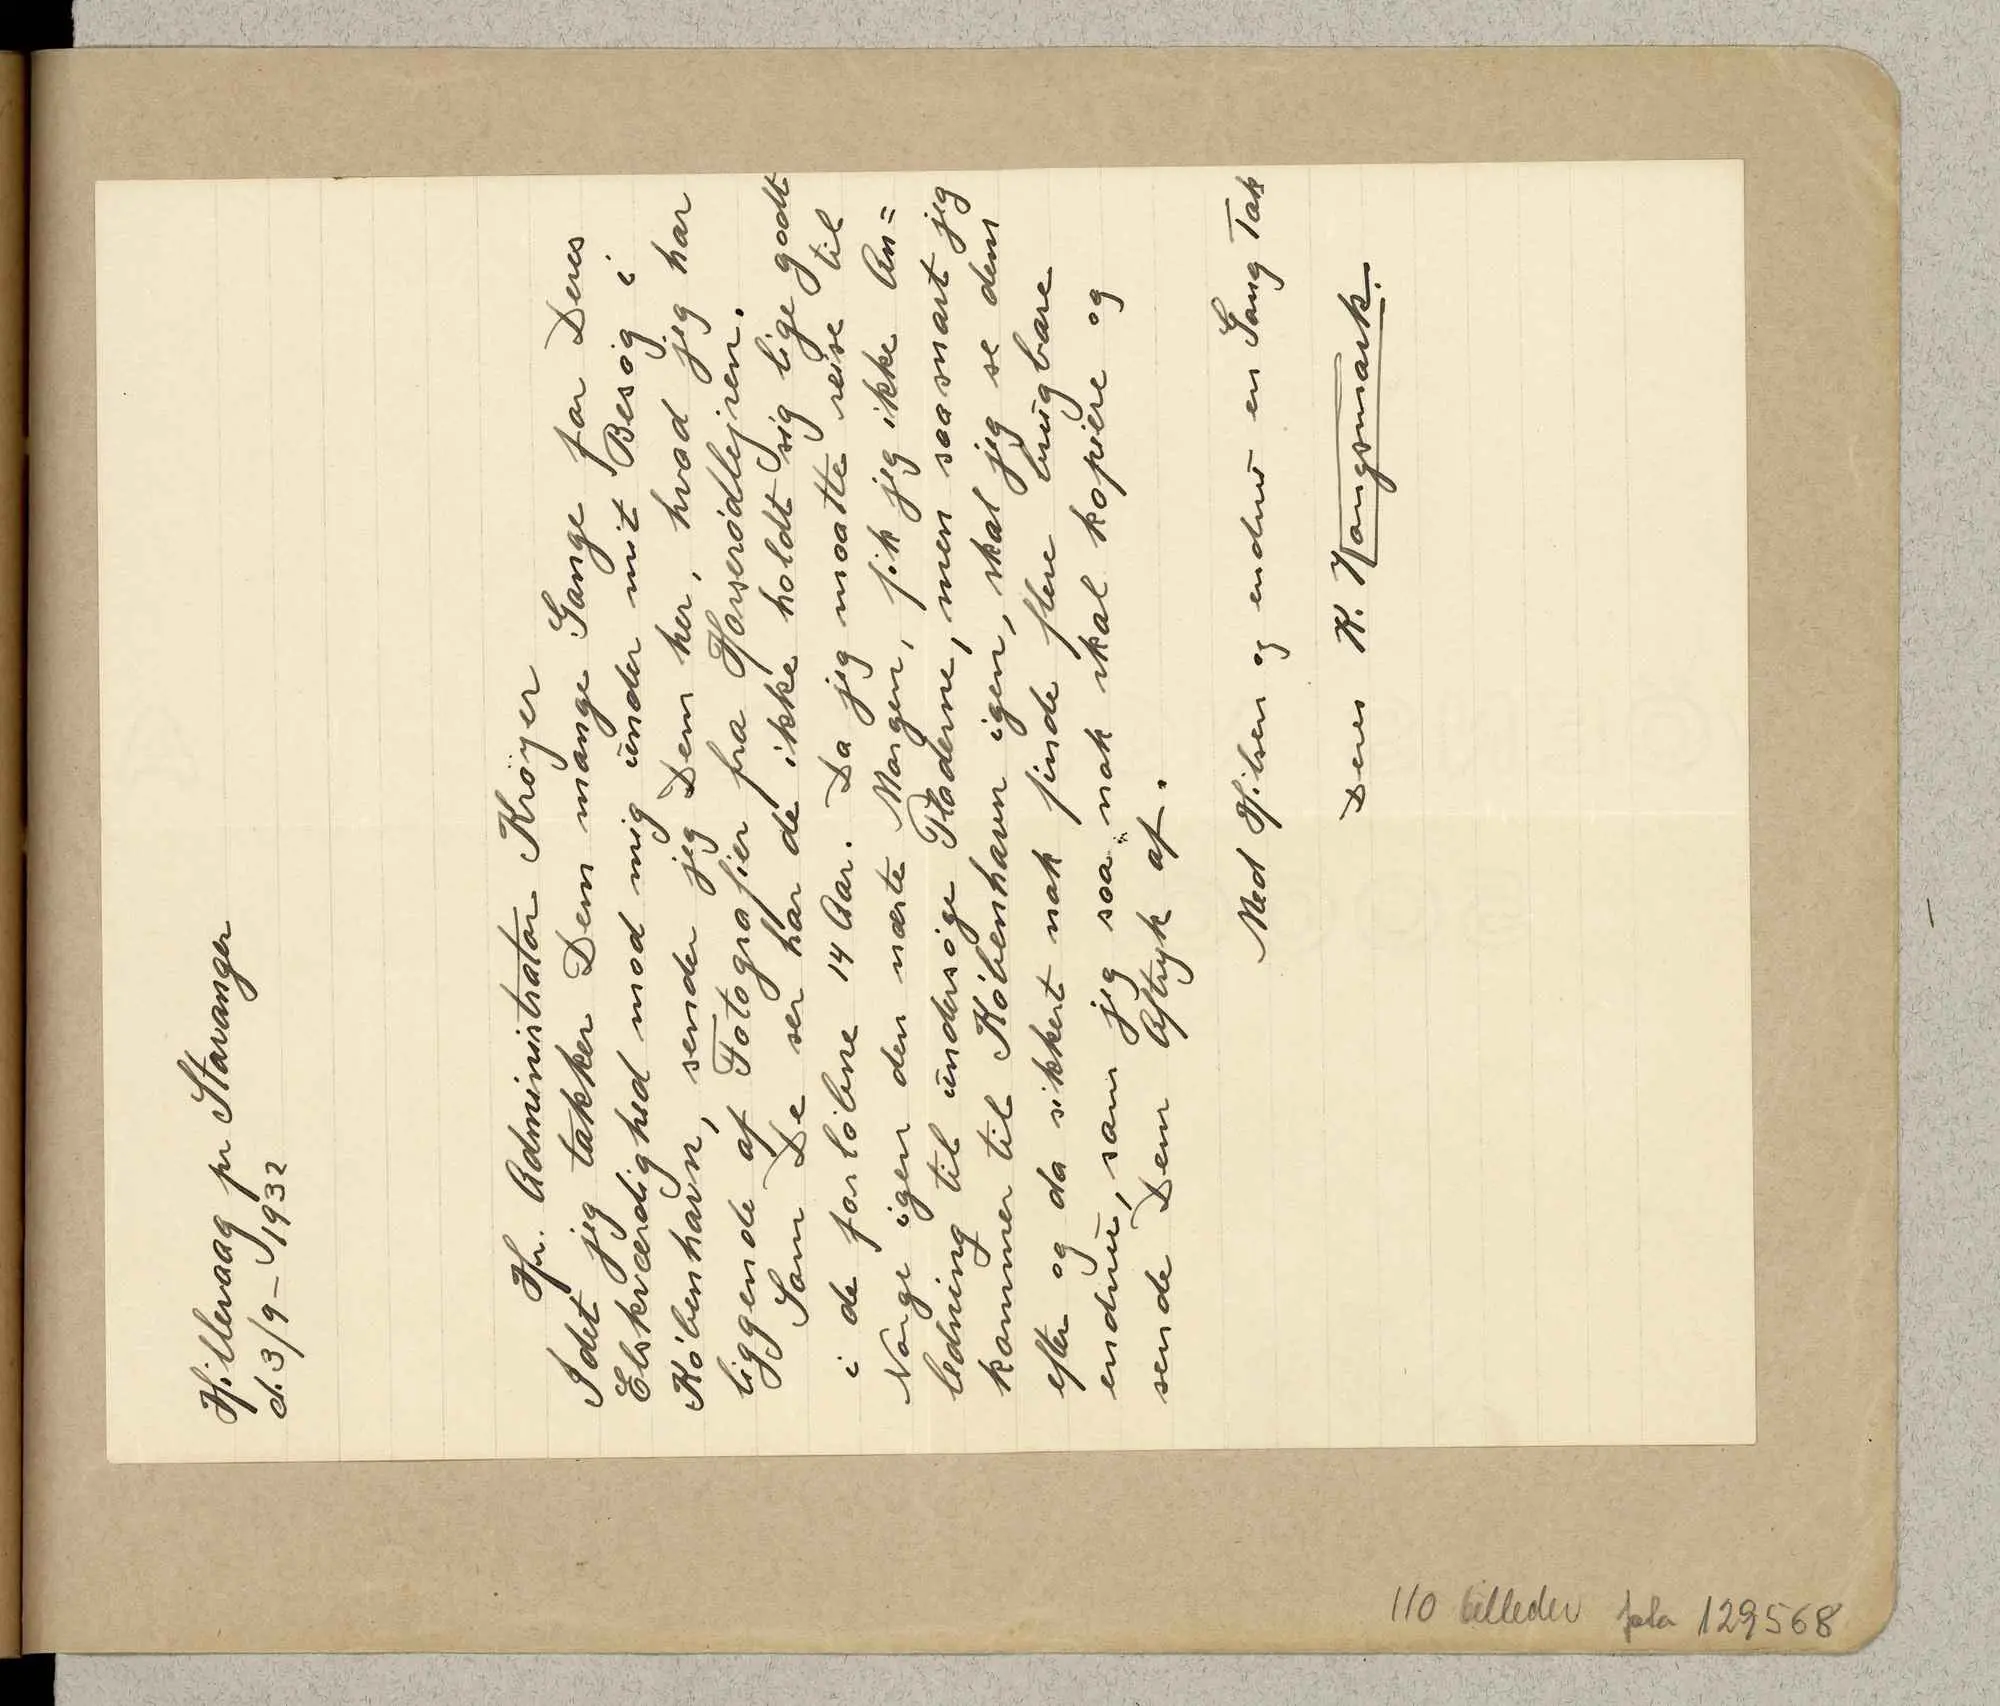 Hillevaag pr Stavanger
d. 3/9 – 1932
Hr. Administrator Krøyer
Idet jeg takker Dem mange Gange for Deres
Elskværdighed mod mig under mit Besøg i
København, sender jeg Dem her, hvad jeg har
liggende af Fotografier fra Horserødlejren.
Som De ser har de ikke holdt sig lige godt
i de forløbne 14 Aar. Da jeg maatte reise til
Norge igen den næste Morgen, fik jeg ikke An=
ledning til undersøge Pladerne, men saasnart jeg
kommer til København igen, skal jeg se dem
efter og da sikkert nok finde flere brugbare
endnu, som jeg saa nok skal kopiere og
sende Dem Aftryk af.
Med Hilsen og endnu en Gang Tak
Deres K. Kongsmark.
110 billeder foto 129568